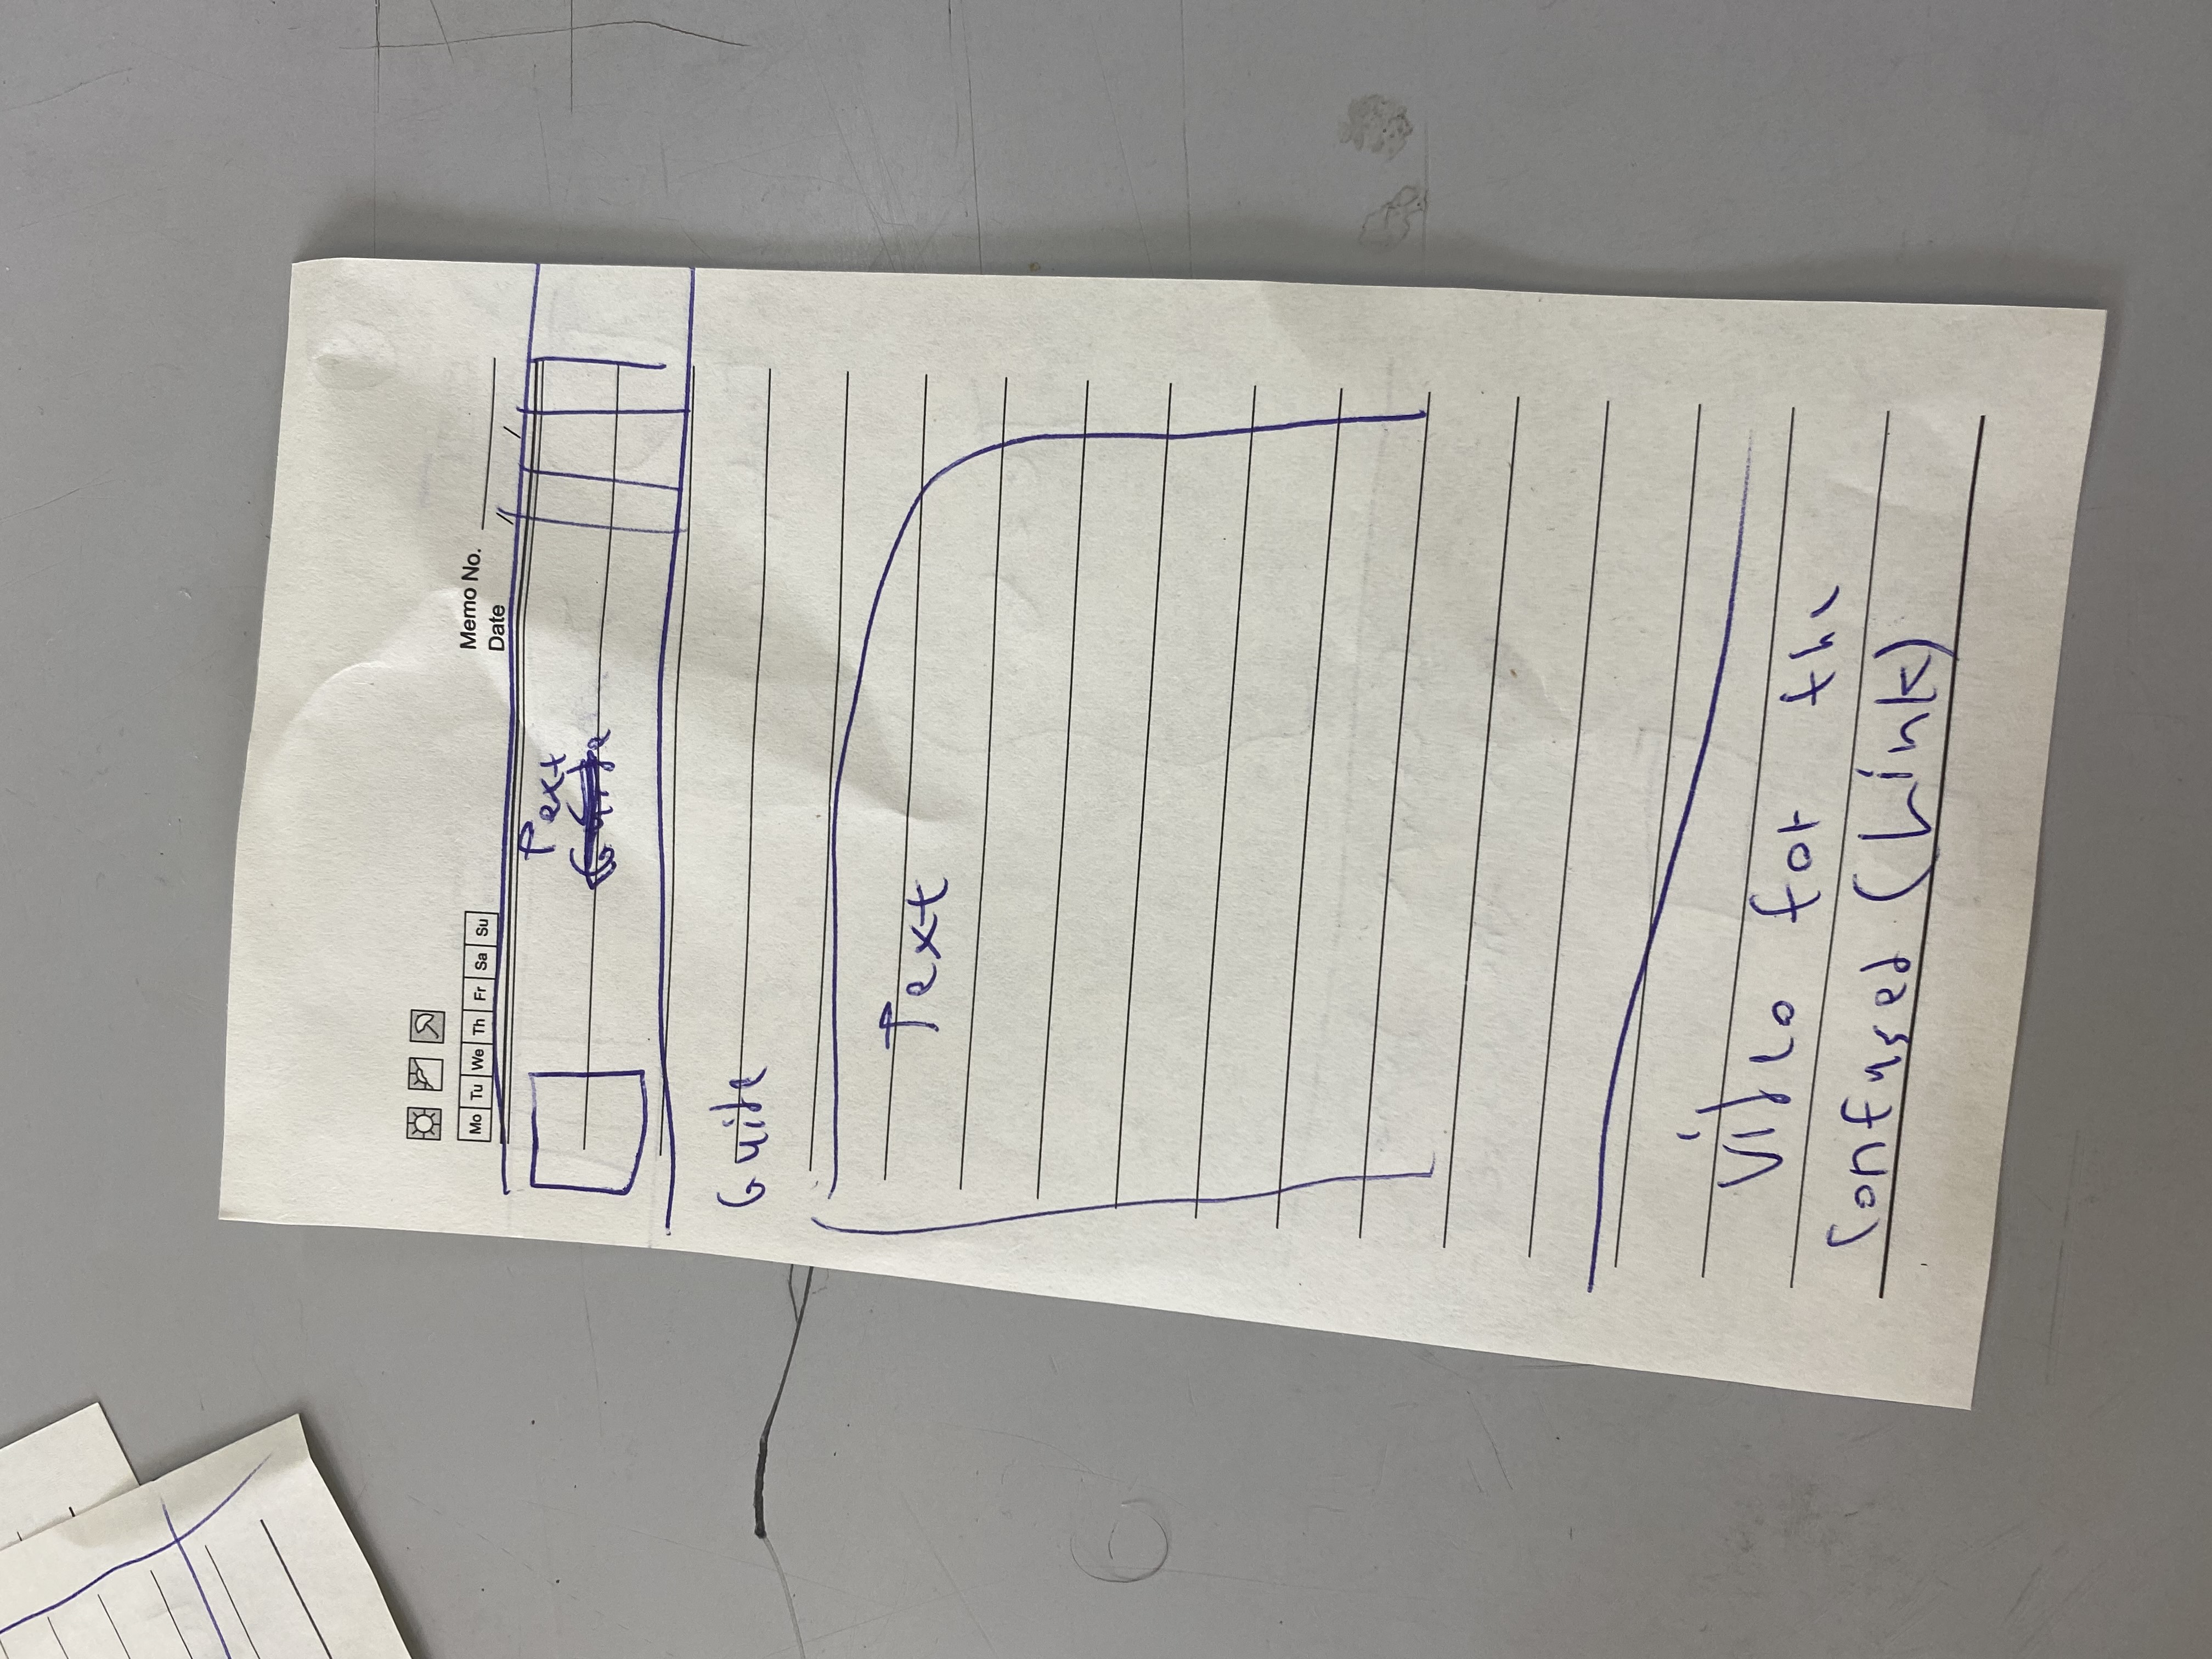 Mo Tu We Th Fr Sa Su
Memo No.
Date / /
Text
Guide
Guide
Text
Video for the
Confused (Link)